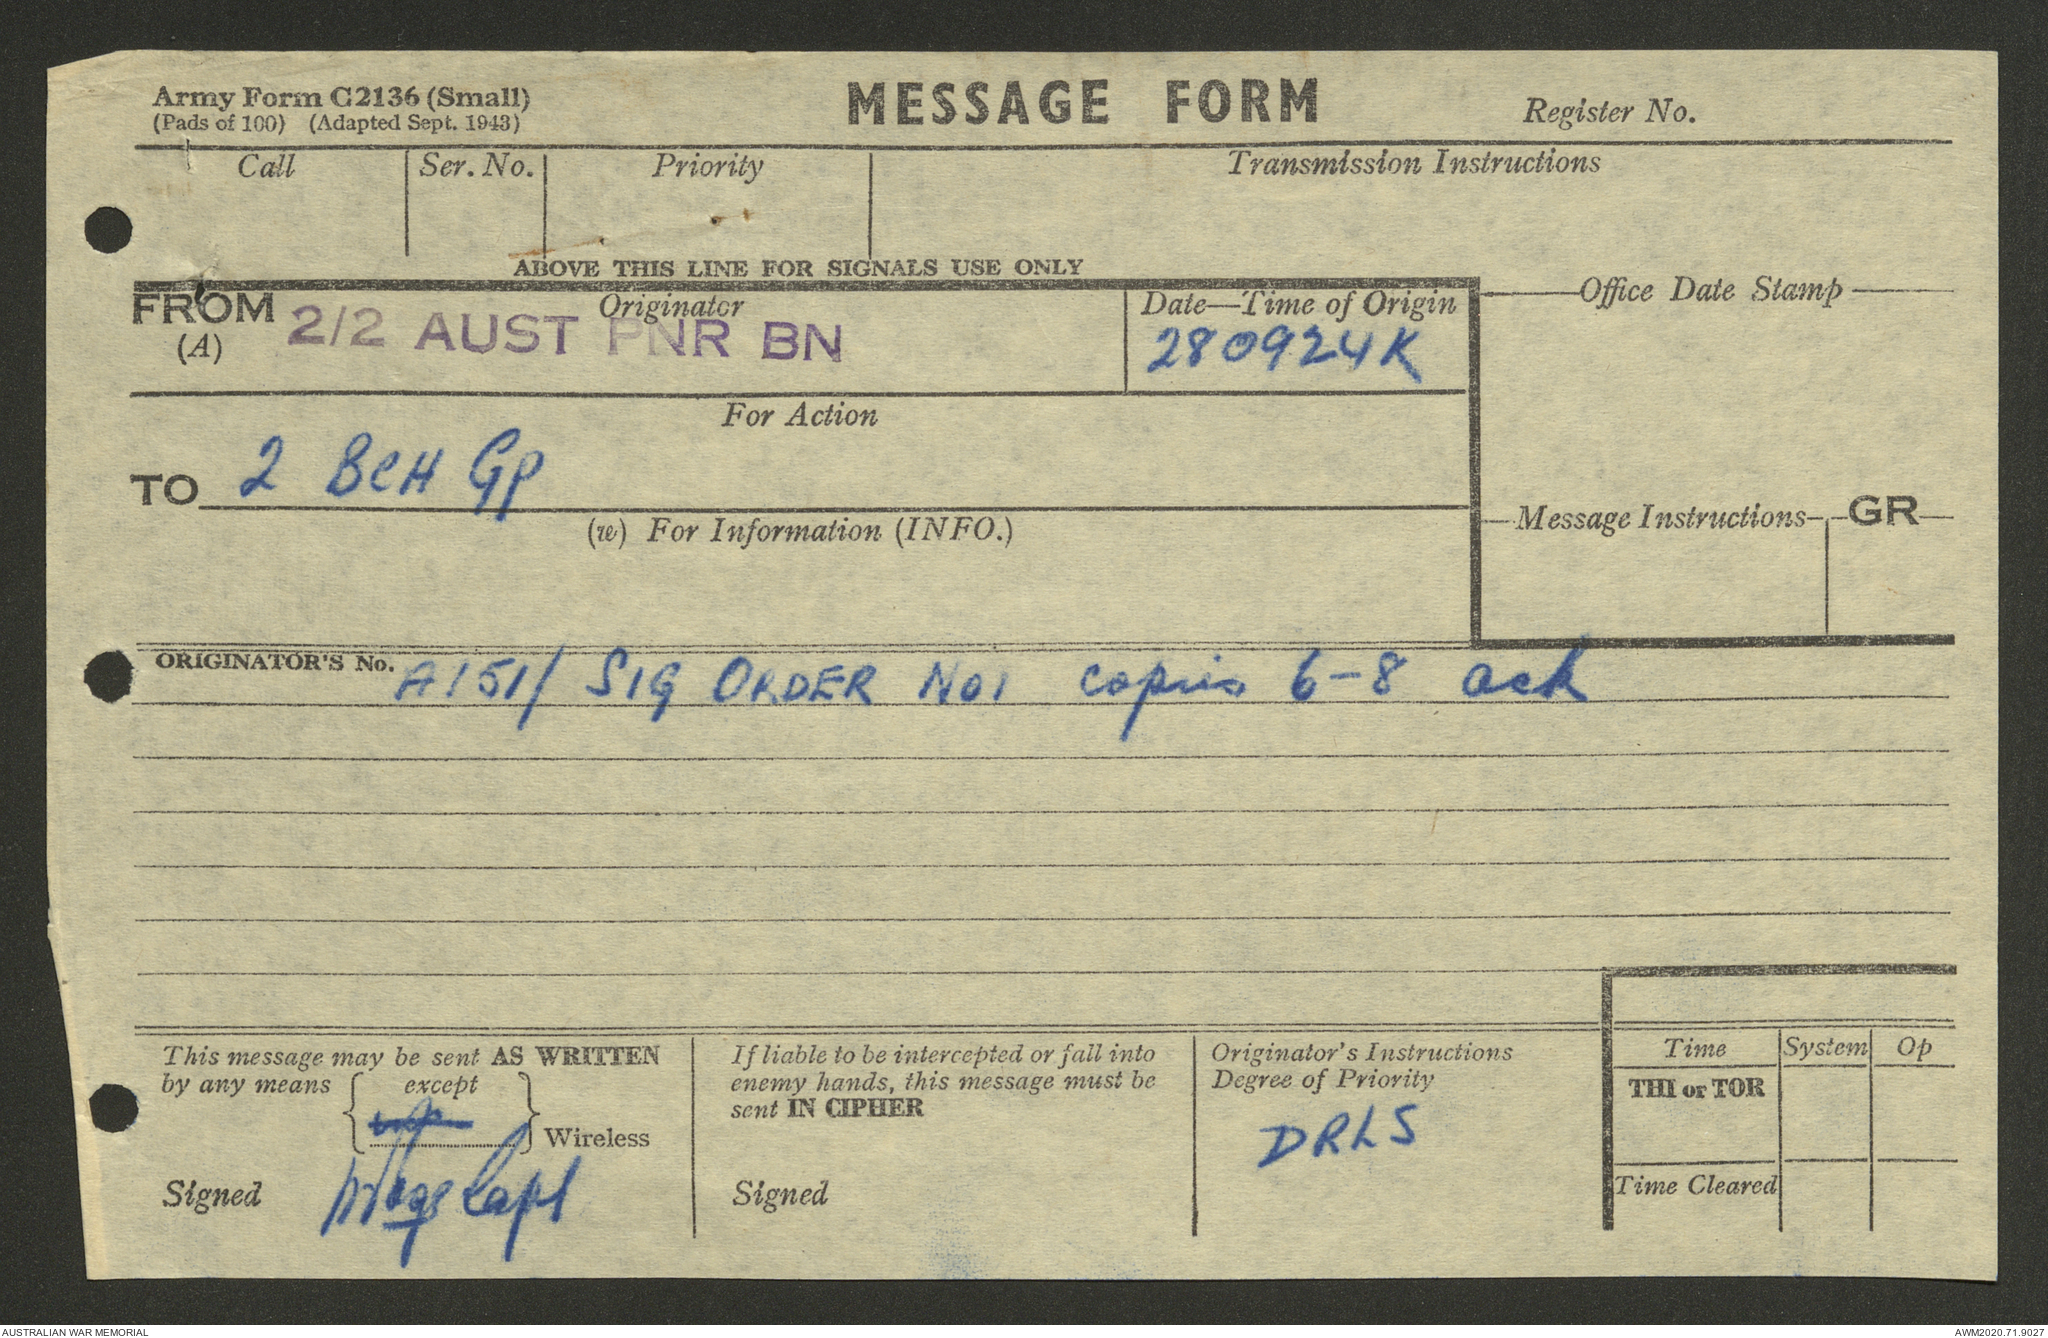 Army Form C2136 (Small)
(Pads of 100) (Adapted Sept. 1943)
MESSAGE FORM
Register No.
Call
Ser. No.
Priority
Transmission Instructions
ABOVE THIS LINE FOR SIGNALS USE ONLY
FROM
(A)
Originator
2/2 AUST PNR BN
Date—Time of Origin
280924K
Office Date Stamp
For Action
TO
2 BCH GP
(w) For Information (INFO.)
Message Instructions
GR
ORIGINATOR'S No. A151/ SIG ORDER No1 copies 6-8 ack
This message may be sent AS WRITTEN
by any means except
Wireless
Signed
Capt
If liable to be intercepted or fall into
enemy hands, this message must be
sent IN CIPHER
Signed
Originator's Instructions
Degree of Priority
DRLS
Time
System
Op
THI or TOR
Time Cleared
AUSTRALIAN WAR MEMORIAL
AWM2020.71.9027